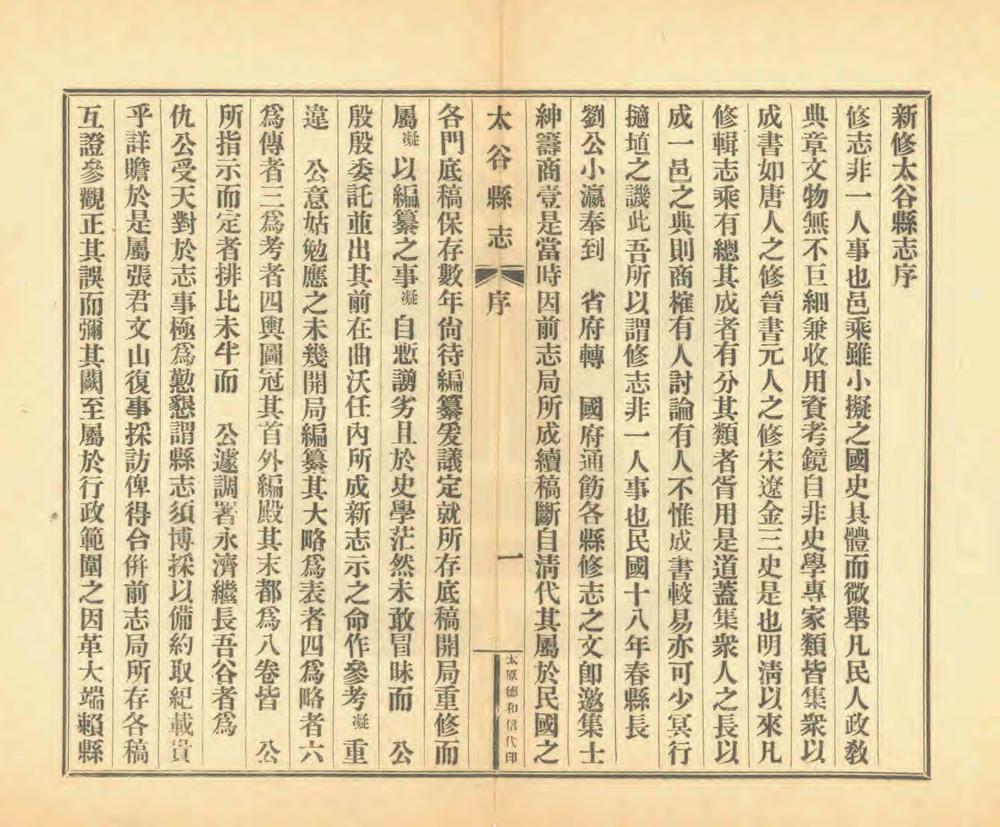 新修太谷縣志序
修志非一人事也邑乘雖小擬之國史具體而微舉凡民人政教
典章文物無不巨細兼收用資考鏡自非史學專家類皆集衆以
成書如唐人之修晉書元人之修宋遼金三史是也明淸以來凡
修輯志乘有總其成者有分其類者胥用是道蓋集衆人之長以
成一邑之典則商榷有人討論有人不惟成書較易亦可少冥行
擿埴之譏此吾所以謂修志非一人事也民國十八年春縣長
劉公小瀛奉到 省府轉 國府通飭各縣修志之文卽邀集士
紳籌商壹是當時因前志局所成續稿斷自淸代其屬於民國之
太谷縣志 序 一 太原德和信代印
各門底稿保存數年尙待編纂爰議定就所存底稿開局重修而
屬凝以編纂之事凝自慙謭劣且於史學茫然未敢冒昧而 公
殷殷委託並出其前在曲沃任內所成新志示之命作參考凝重
違 公意姑勉應之未幾開局編纂其大略爲表者四爲略者六
爲傳者三爲考者四輿圖冠其首外編殿其末都爲八卷皆 公
所指示而定者排比未半而 公遽調署永濟繼長吾谷者爲
仇公受天對於志事極爲懃懇謂縣志須博採以備約取紀載貴
乎詳贍於是屬張君文山復事採訪俾得合倂前志局所存各稿
互證參觀正其誤而彌其闕至屬於行政範圍之因革大端賴縣